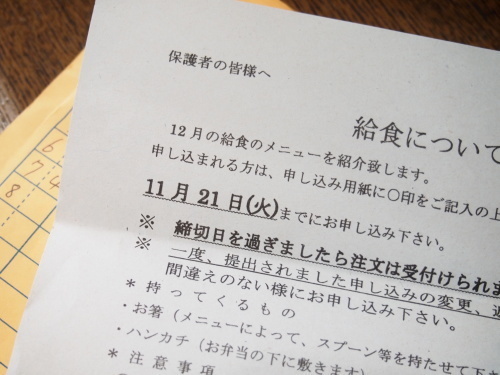 保護者の皆様へ
給食について
12月の給食のメニューを紹介致します。
申し込まれる方は、申し込み用紙に○印をご記入の上
11月21日(火)までにお申し込み下さい。
※ 締切日を過ぎましたら注文は受付けられま
※ 一度、提出されました申し込みの変更、返
間違えのない様にお申し込み下さい。
* 持ってくるもの
・お箸(メニューによって、スプーン等を持たせて下さ
・ハンカチ(お弁当の下に敷きます)
* 注意事項
6
7 4
8